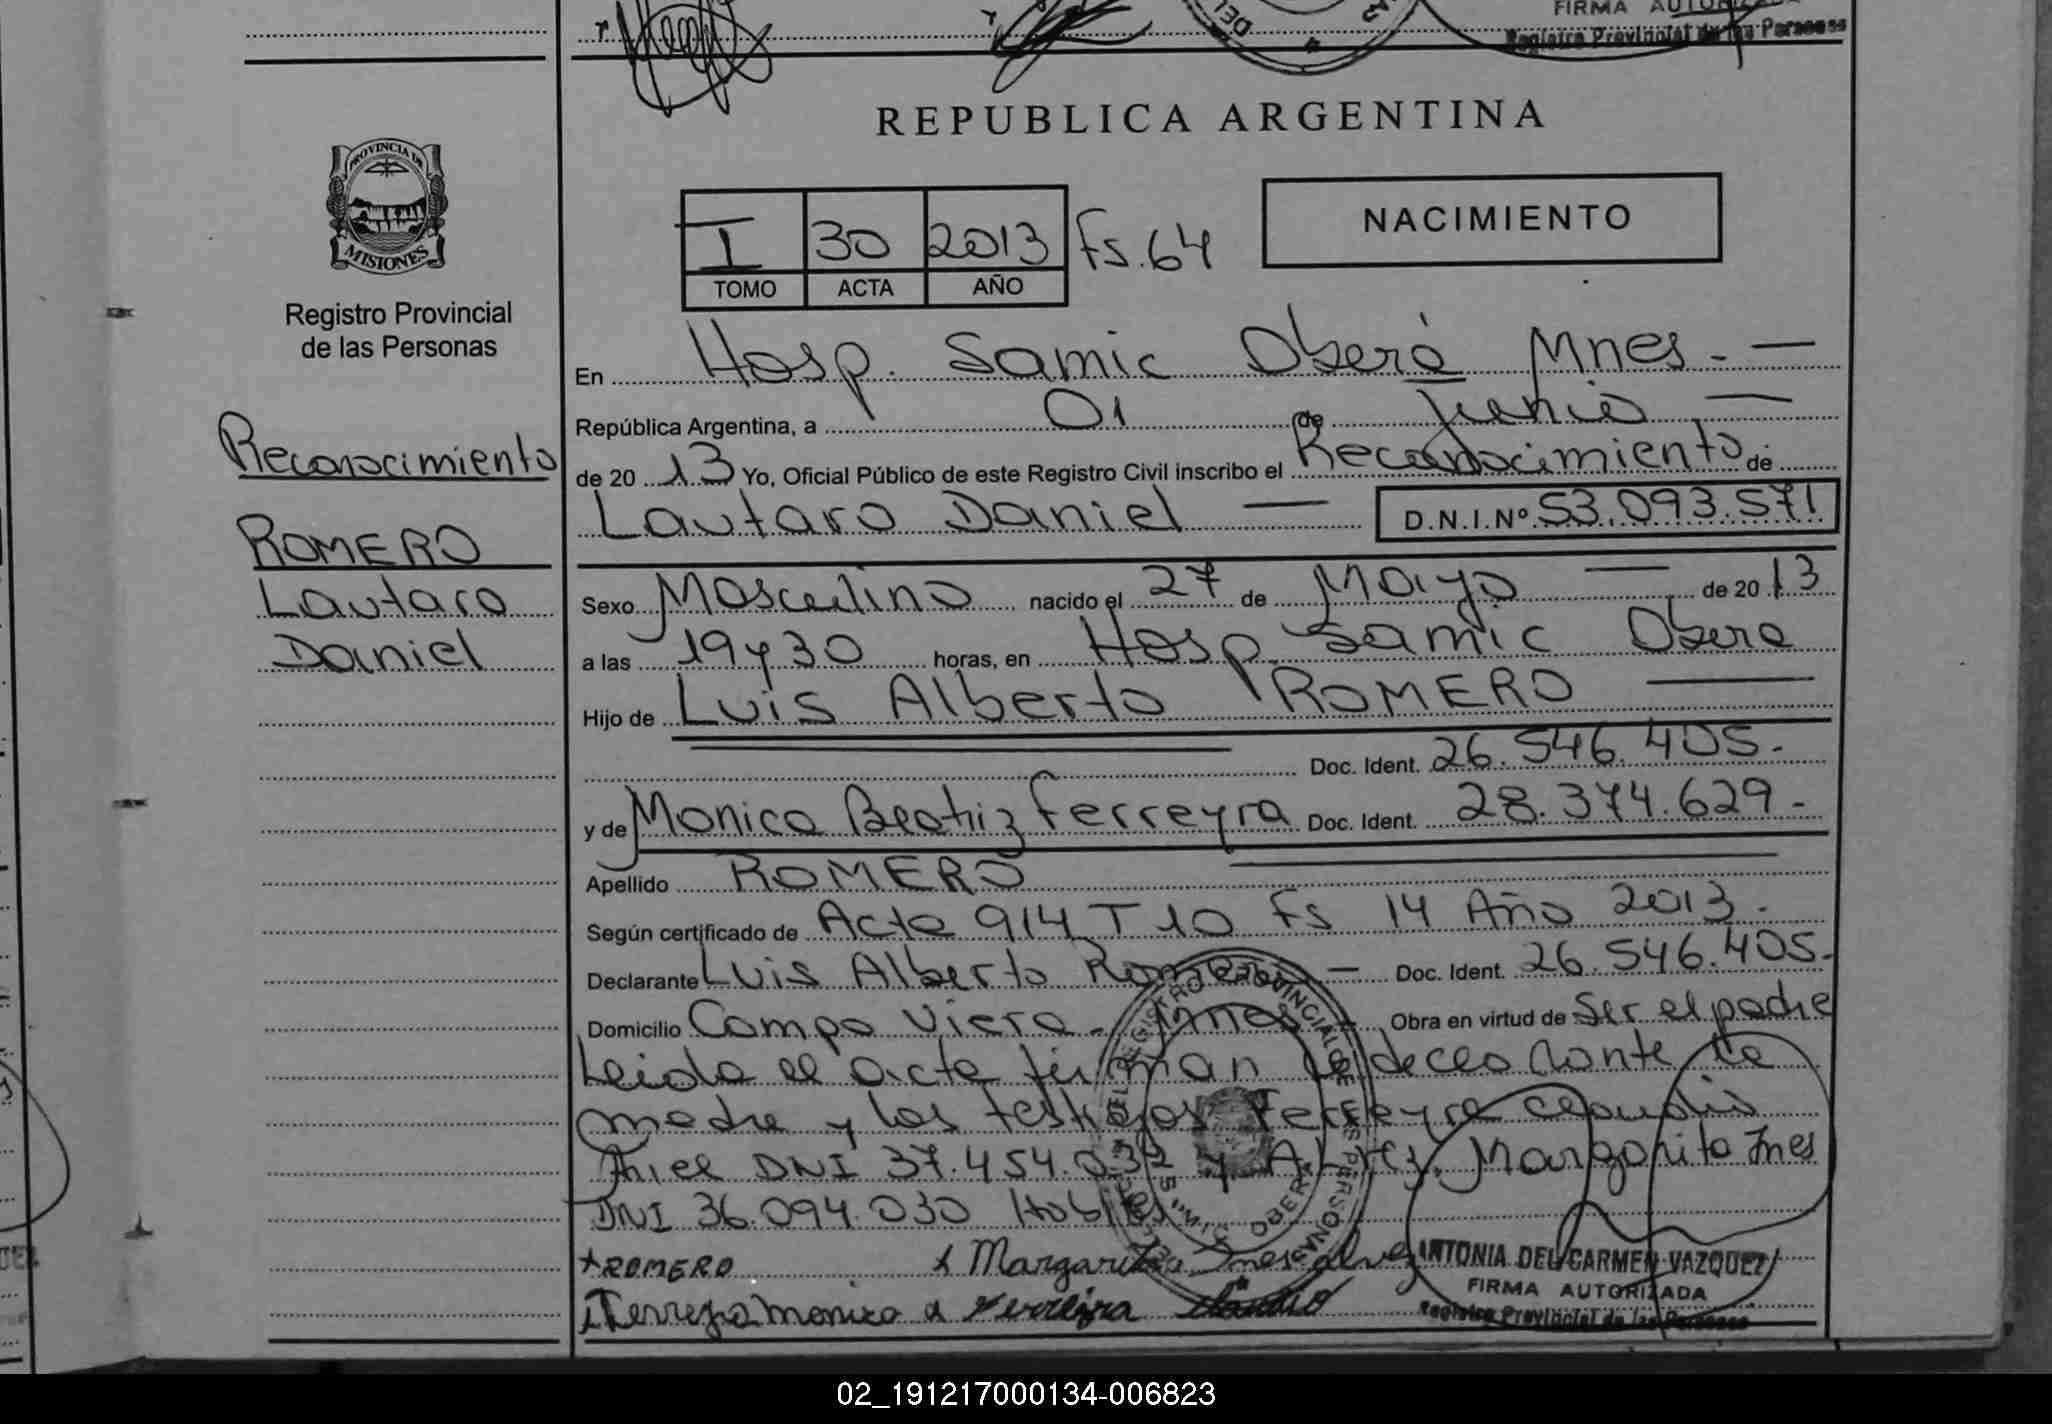 FIRMA AUTORIZADA
Registro Provincial de las Personas
REPUBLICA ARGENTINA
PROVINCIA DE
MISIONES
Registro Provincial
de las Personas
I 30 2013 Fs. 64
TOMO ACTA AÑO
NACIMIENTO
En Hosp. Samic Oberá Mnes. —
República Argentina, a 01 de Junio —
Reconocimiento
de 20 13 Yo, Oficial Público de este Registro Civil inscribo el Reconocimiento de
Lautaro Daniel — D.N.I.Nº 53.093.571
ROMERO
Lautaro
Daniel
Sexo Masculino nacido el 27 de Mayo — de 20 13
a las 19 y 30 horas, en Hosp. Samic Obera
Hijo de Luis Alberto ROMERO —
Doc. Ident. 26.546.405.-
y de Monica Beatriz Ferreyra Doc. Ident. 28.374.629.-
Apellido ROMERO
Según certificado de Acta 914 T 10 Fs 14 Año 2013.
Declarante Luis Alberto Romero — Doc. Ident. 26.546.405.-
Domicilio Campo Viera. Mnes — Obra en virtud de Ser el padre
Leida el acta firman el declarante la
madre y los testigos Ferreyra Claudio
Ariel DNI 37.454.032 y Alvez, Margarita Ines
DNI 36.094.030 Habiles
x ROMERO x Margarita Ines Alvez
Ferreyra monica x Ferreira Claudio
ANTONIA DEL CARMEN VAZQUEZ
FIRMA AUTORIZADA
Registro Provincial de las Personas
REGISTRO PROVINCIAL DE LAS PERSONAS
OBERA
02_191217000134-006823